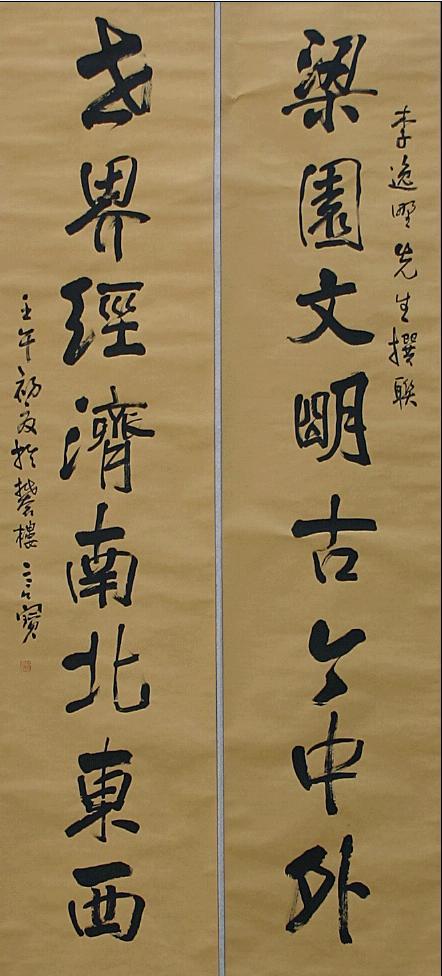 李逸野先生撰联
梁園文明古今中外
世界經濟南北東西
壬午初夏於
樓言寶